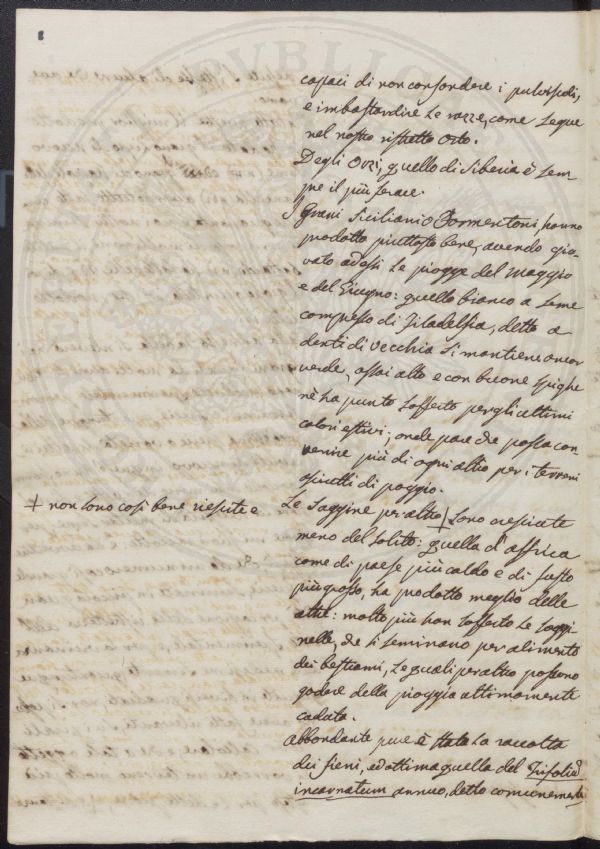 capaci di non confondere i pulviscoli,
e imbastardire le razze, come segue
nel nostro ristretto Orto.
Degli Orzi, quello di Siberia è sem-
pre il più ferace.
I Grani Siciliani o Formentoni, hanno
prodotto piuttosto bene, avendo gio-
vato ad essi le piogge del Maggio
e del Giugno: quello bianco a seme
compresso di Filadelfia, detto a
denti di vecchia si mantiene ancor
verde, assai alto e con buone spighe
nè ha punto sofferto per gli ultimi
calori estivi; onde pare che possa con-
venire più di ogni altro per i terreni
asciutti di poggio.
Le Saggine per altro + sono cresciute
+ non sono così bene riescite e
meno del solito: quella d'Affrica
come di paese più caldo e di fusto
più grosso, ha prodotto meglio delle
altre: molto più han sofferto le Saggi-
nelle, che si seminano per alimento
dei bestiami, le quali per altro possono
godere della pioggia ultimamente
caduta.
Abbondante pure è stata la raccolta
dei fieni, ed ottima quella del Trifolium
incarnatum annuo, detto comunemente